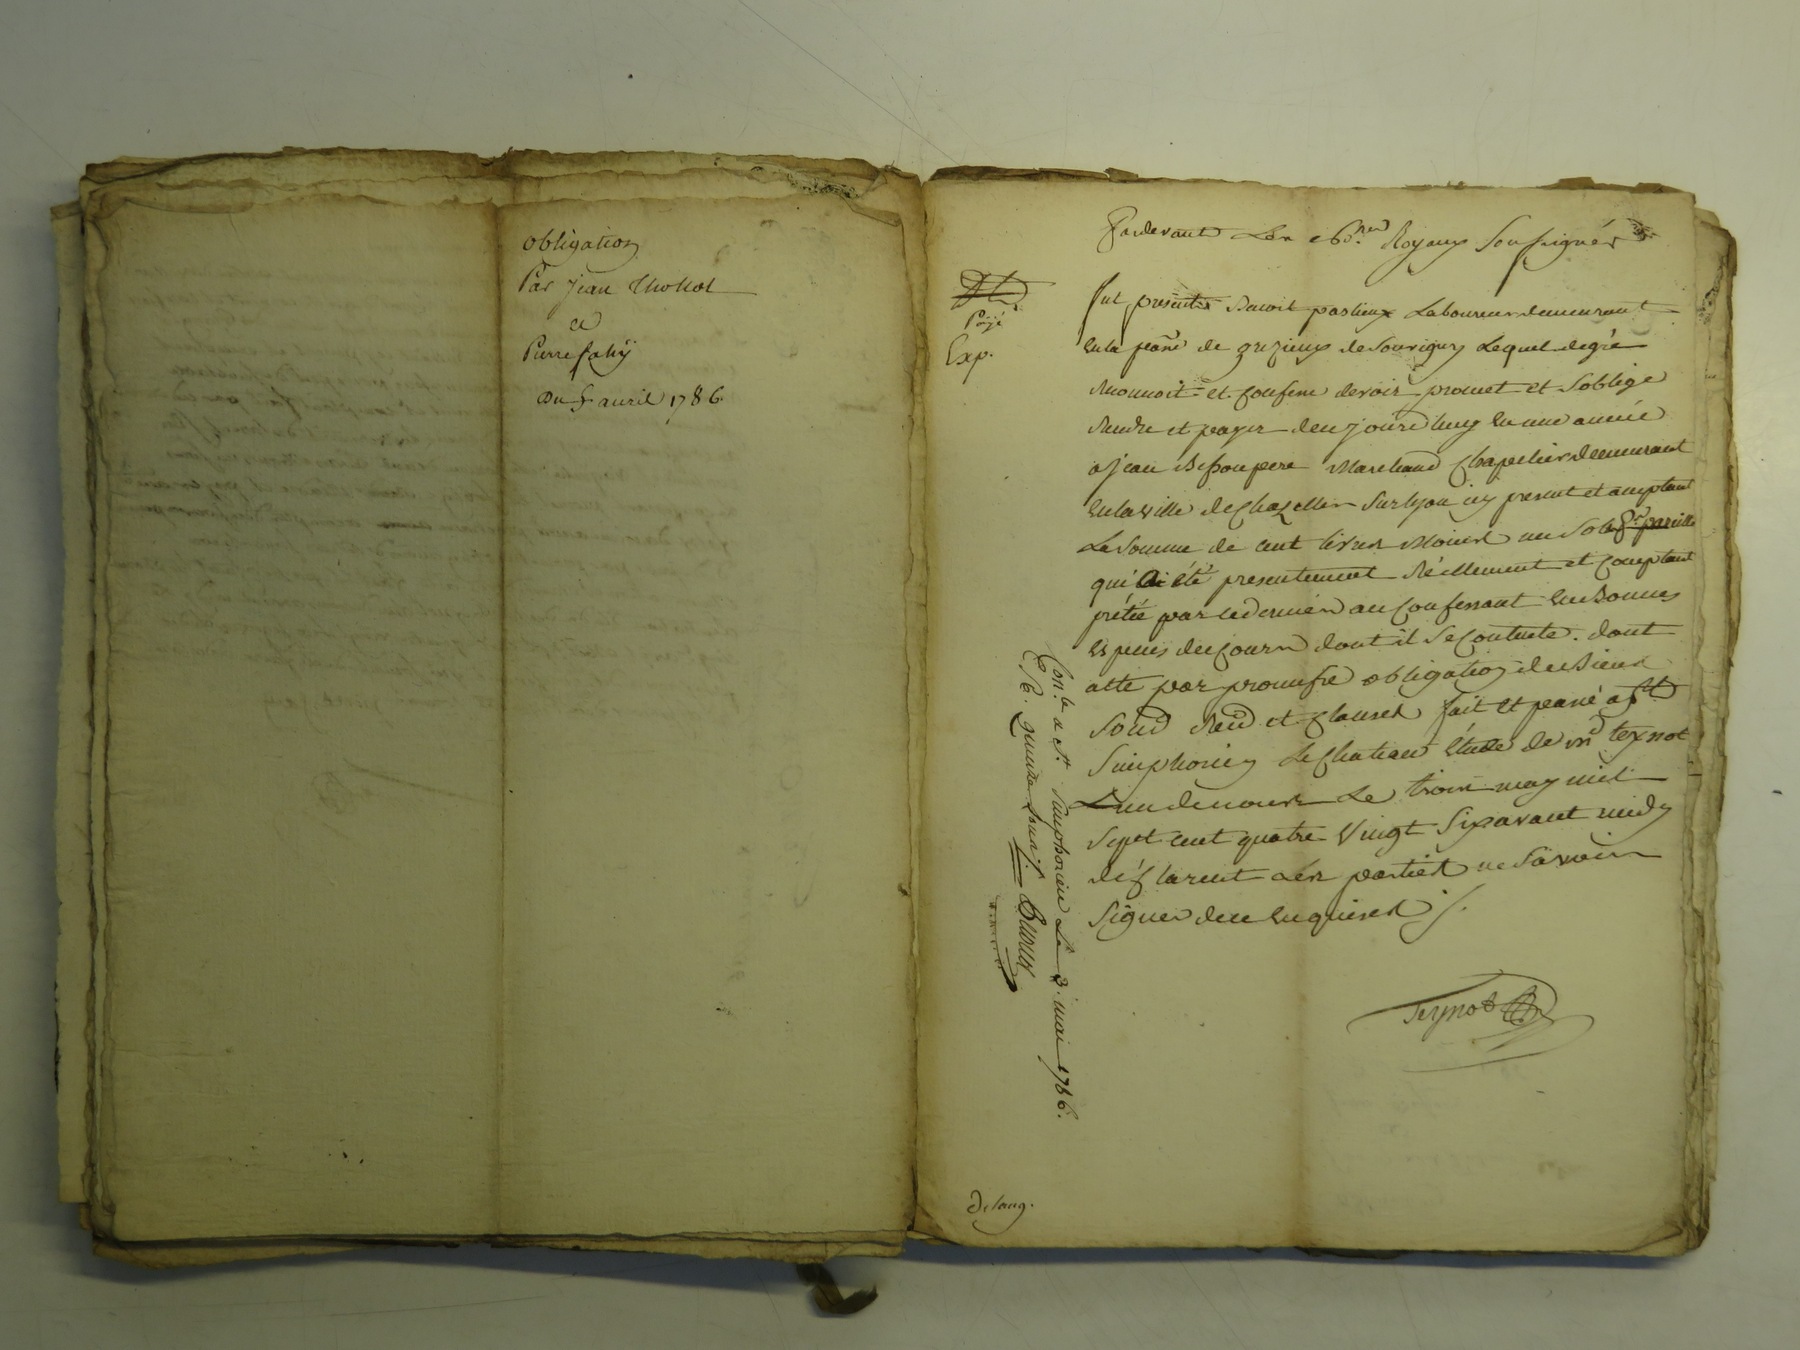 obligation
Par jean thollot
et
Pierre
Du 5 avril 1786
Pardevant Les Royaux soussignés
Payé
Exp.
fut present Benoit Laboureur demeurant
en la de grezieux de souvigny Lequel de gré
Reconnoit et confesse devoir promet et s'oblige
Rendre et payer de ce jourd'huy en une année
a jean Marchand chapellier demeurant
en la ville de chazelles sur lyon icy present et acceptant
La somme de cent livres Moins un sol
qui a été presentement Réellement et comptant
prétée par ce dernier au confessant en Bonnes
especes de cours dont il se contente. dont
acte par promesse obligation de Biens
soumd Rend et clauses fait et passé a st
simphorien Le chateau étude de me teynot
L'un de nous Le trois may mil
sept cent quatre vingt six avant midy
déclarent Les parties ne sàvoir
signer de ce enquises /.
Teynot
Con.le a st simphorien Le 3. mai 1786.
R. quinze sous